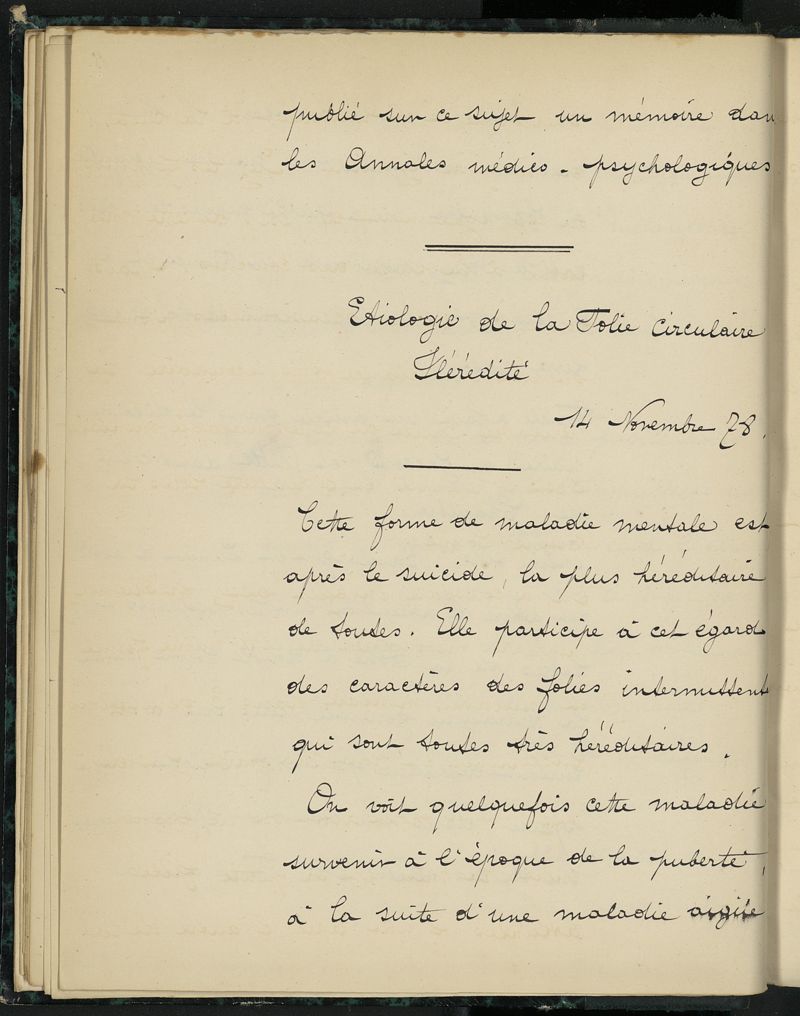 publié sur ce sujet un mémoire dans
les Annales médico-psychologiques
Etiologie de la Folie circulaire
Hérédité
14 Novembre 78.
Cette forme de maladie mentale est
après le suicide, la plus héréditaire
de toutes. Elle participe à cet égard
des caractères des folies intermittent
qui sont toutes très héréditaires.
On voit quelquefois cette maladie
survenir à l'époque de la puberté,
à la suite d'une maladie